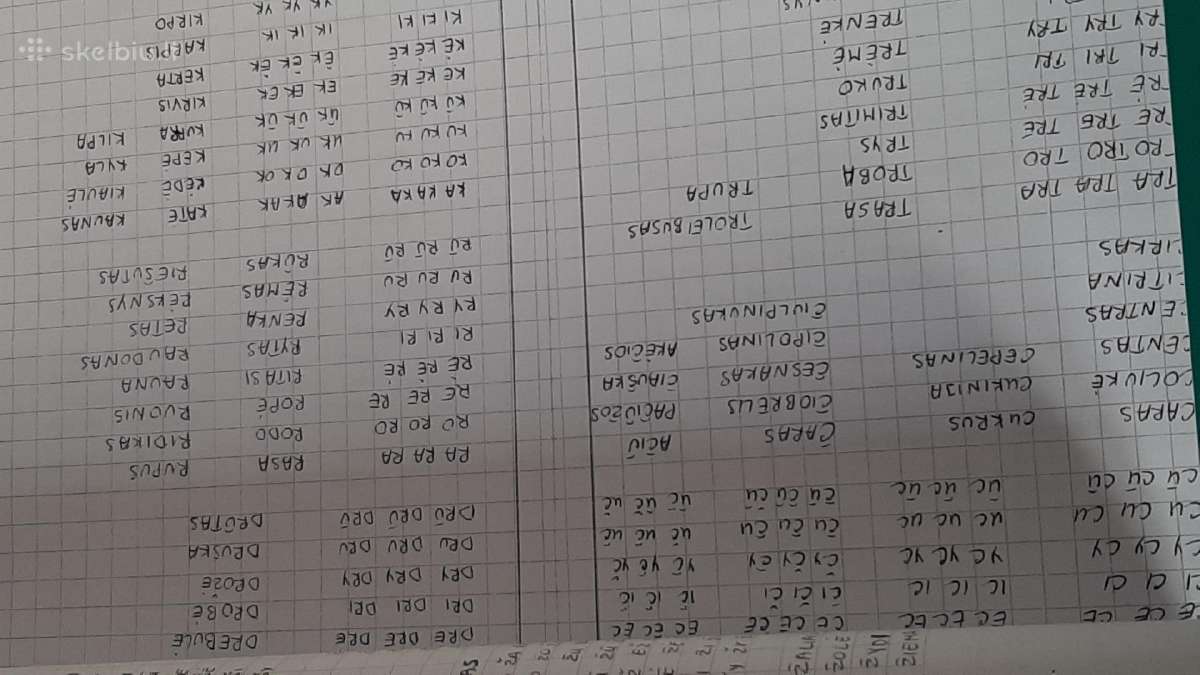 ŽIEM
ŽYDI
ŽOLĖ
ŽALIA
CE CE CE EC EC EC ČE ČE ČE EČ EČ EČ
CI CI CI IC IC IC ČI ČI ČI IČ IČ IČ
CY CY CY YC YC YC ČY ČY ČY YČ YČ YČ
CU CU CU UC UC UC ČU ČU ČU UČ UČ UČ
CŪ CŪ CŪ ŪC ŪC ŪC ČŪ ČŪ ČŪ ŪČ ŪČ ŪČ
CAPAS CUKRUS ČAPAS AČIŪ
COLIUKĖ CUKINIJA ČIOBRELIS PAČIŪŽOS
CENTAS CEPELINAS ČESNAKAS ČIAUŠKA
CENTRAS ČIPOLINAS AKĖČIOS
CITRINA ČIULPINUKAS
CIRKAS
TRA TRA TRA TRASA TROLEIBUSAS
TRO TRO TRO TROBA TRUPA
TRE TRE TRE TRYS
TRĖ TRĖ TRĖ TRIMITAS
TRI TRI TRI TRUKO
TRY TRY TRY TRĖMĖ
TRENKĖ
DRE DRE DRE DREBULĖ
DRI DRI DRI DROBĖ
DRY DRY DRY DROŽĖ
DRU DRU DRU DRUSKA
DRŪ DRŪ DRŪ DRŪTAS
RA RA RA RASA RUPUS
RO RO RO RODO RIDIKAS
RE RE RE ROPĖ RUONIS
RĖ RĖ RĖ RITASI RAUNA
RI RI RI RYTAS RAUDONAS
RY RY RY RENKA RETAS
RU RU RU RĖMAS RĖKSNYS
RŪ RŪ RŪ RŪKAS RIEŠUTAS
KA KA KA AK AK AK KATĖ KAUNAS
KO KO KO OK OK OK KĖDĖ KIAULĖ
KU KU KU UK UK UK KEPĖ KYLA
KŪ KŪ KŪ ŪK ŪK ŪK KUPRA KILPA
KE KE KE EK EK EK KIRVIS
KĖ KĖ KĖ ĖK ĖK ĖK KERTA
KI KI KI IK IK IK KARPIS
YK YK YK KIRPO
skelbiu.lt